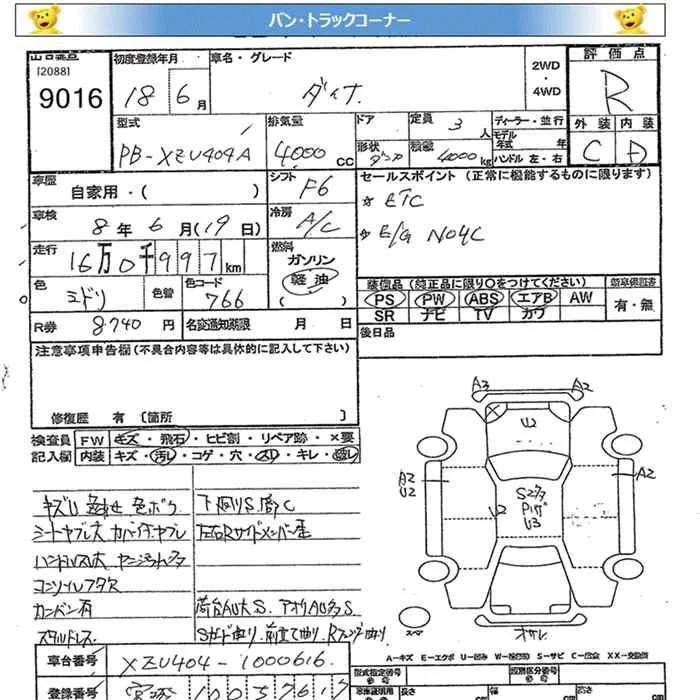 バン・トラックコーナー
[2088]
9016
初度登録年月
18 6月
車名・グレード
ダイナ
2WD
・
4WD
評価点
R
外装 内装
C D
型式
PB-XZU404A
排気量
4000 CC
ドア
形状
定員 3 人
積載 4000 kg
ディーラー・並行
モデル年式 年
ハンドル 左・右
車歴 自家用・( )
シフト F6
セールスポイント (正常に機能するものに限ります)
☆ ETC
☆ E/G N04C
車検 8年 6月(19日)
冷房 A/C
走行 16万0千997km
燃料
ガソリン
軽油
( )
色 ミドリ
色替
色コード 766
装備品 (純正品に限り○をつけてください)
PS PW ABS エアB AW
SR ナビ TV カワ
新車保証書
有・無
R券 8740円
名変通知期限 月 日
後日品
注意事項申告欄 (不具合内容等は具体的に記入して下さい)
修復歴 有 [箇所 ]
検査員 FW キズ・飛石・ヒビ割・リペア跡・×要
記入欄 内装 キズ・汚レ・コゲ・穴・スレ・キレ・破レ
A3 A2
U2
A2
U2
A2
U2
S2多
U3
キズU 色あせ 色ボケ
下廻りS.腐C
シートヤブレ大
左右Rサイドメンバー歪
ハンドルスレ大
コンソイルフタ欠
カンバン有
荷台AU大S. アオリAU多S
スタッドレス
スペア
A-キズ E-エクボ U-凹み W-補修跡 S-サビ C-腐食 X-交換 XX-交換済
車台番号 XZU404-1000616
型式指定番号
類別区分番号
登録番号 宮城 100
長さ cm
幅 cm
高さ cm